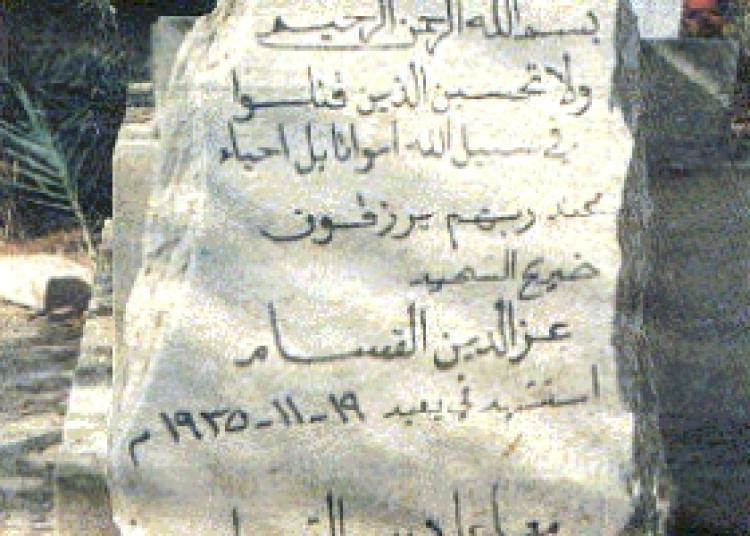 بسم الله الرحمن الرحيم
ولا تحسبن الذين قتلوا
في سبيل الله امواتا بل احياء
عند ربهم يرزقون
ضريح الشهيد
عز الدين القسام
استشهد في يعبد ١٩-١١-١٩٣٥ م